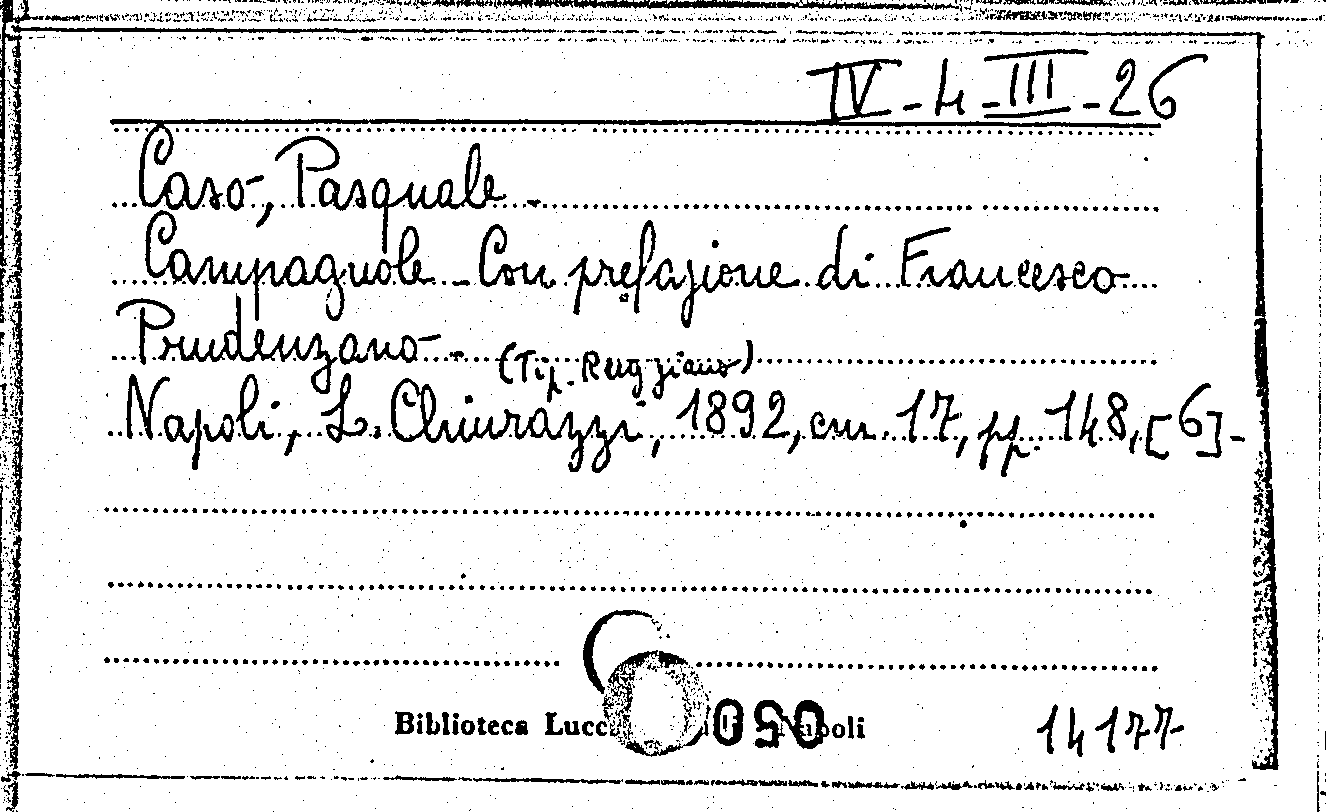 IV-4-III-26
Caso, Pasquale -
Campagnole - Con prefazione di Francesco
Prudenzano - (Tip. Ruggiano)
Napoli, L. Chiurazzi, 1892, cm. 17, pp. 148, [6] -
Biblioteca Napoli
14177